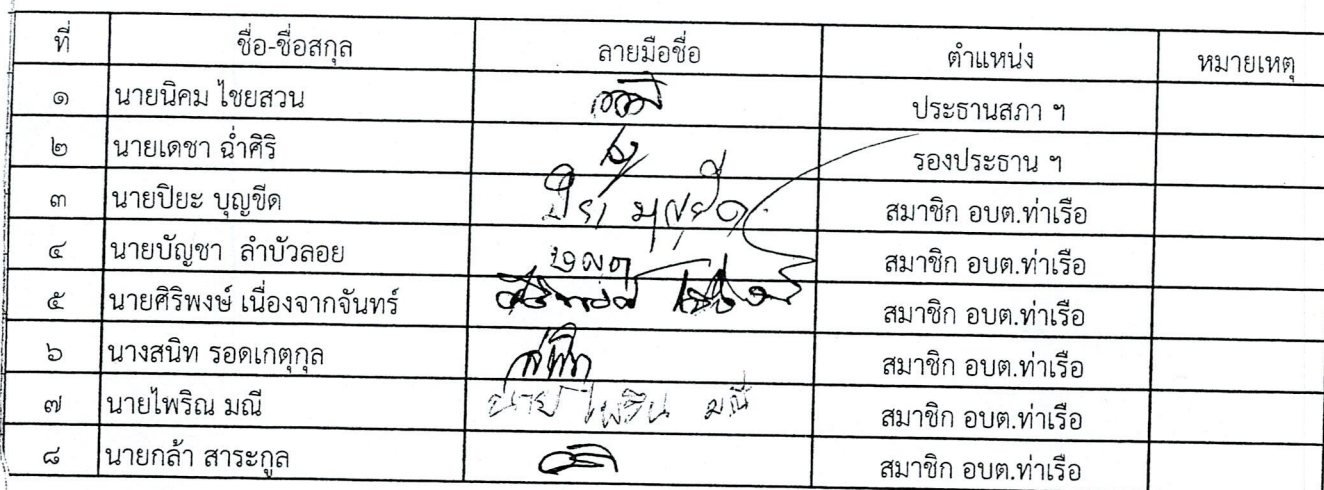 ที่ ชื่อ-ชื่อสกุล ลายมือชื่อ ตำแหน่ง หมายเหตุ
๑ นายนิคม ไชยสวน ประธานสภา ฯ
๒ นายเดชา ฉ่ำศิริ รองประธาน ฯ
๓ นายปิยะ บุญขีด ปิยะ บุญขีด สมาชิก อบต.ท่าเรือ
๔ นายบัญชา ลำบัวลอย สมาชิก อบต.ท่าเรือ
๕ นายศิริพงษ์ เนื่องจากจันทร์ สมาชิก อบต.ท่าเรือ
๖ นางสนิท รอดเกตุกุล สมาชิก อบต.ท่าเรือ
๗ นายไพริณ มณี นายไพริน มณี สมาชิก อบต.ท่าเรือ
๘ นายกล้า สาระกูล สมาชิก อบต.ท่าเรือ